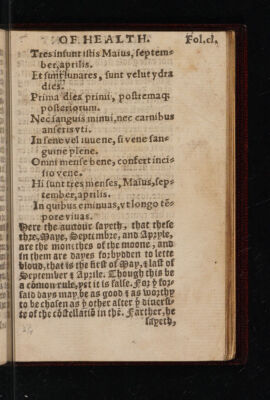 OF HEALTH. Fol.cl.
Tres insunt istis Maius, septem-
ber, aprilis.
Et sunt lunares, sunt velut ydra
dies.
Prima dies primi, postremaq;
posteriorum.
Nec sanguis minui, nec carnibus
anseris vti.
In sene vel iuuene, si vene san-
guine plene.
Omni mense bene, confert inci-
sio vene.
Hi sunt tres menses, Maius, sep-
tember, aprilis.
In quibus eminuas, vt longo tē-
pore viuas.
Here the autour sayeth, that these
thre, Maye, Septembre, and Apryle,
are the monethes of the moone, and
in them are dayes forbydden to lette
bloud, that is the first of May, & last of
September & Aprile. Though this be
a cōmon rule, yet it is false. For yͤ for-
said days may be as good & as worthy
to be chosen as yͤ other after yͤ diuersi-
te of the cōstellatiō in thē. Farther, he
sayeth,